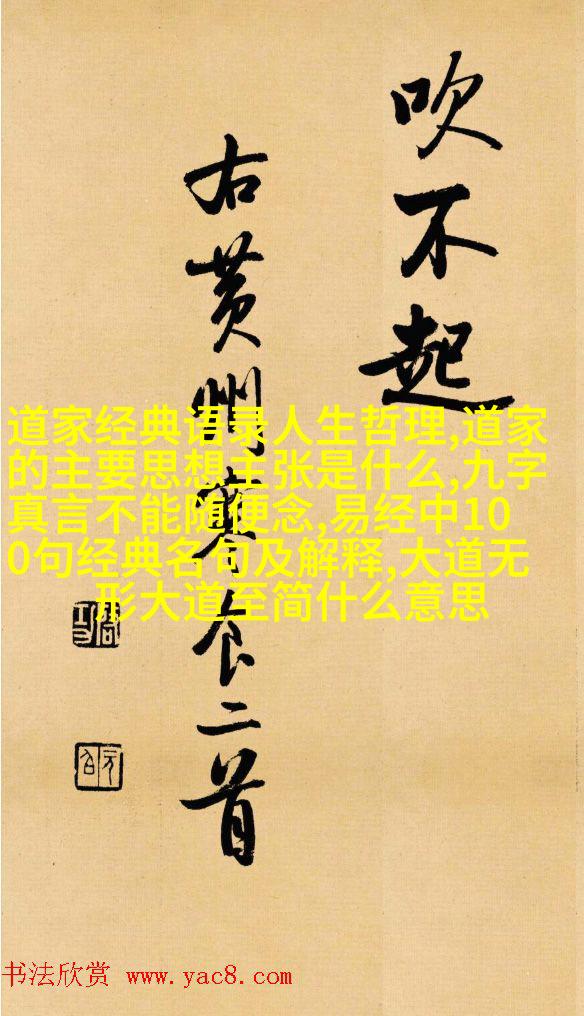 吹不起
右黄州寒食二首
道家经典语录人生哲理,道家
的主要思想主张是什么,九字
真言不能随便念,易经中10
0句经典名句及解释,大道无
形大道至简什么意思
书法欣赏 www.yac8.com